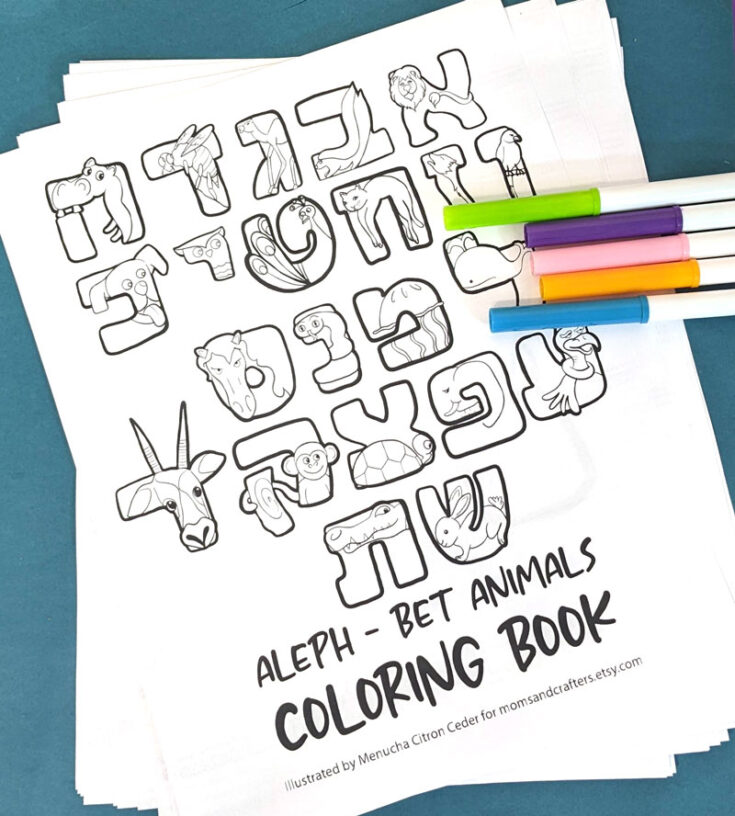 א ב ג ד ה
ו ז ח ט י כ
ל מ נ ס
ע פ צ ק ר
ש ת
ALEPH - BET ANIMALS
COLORING BOOK
Illustrated by Menucha Citron Ceder for momsandcrafters.etsy.com